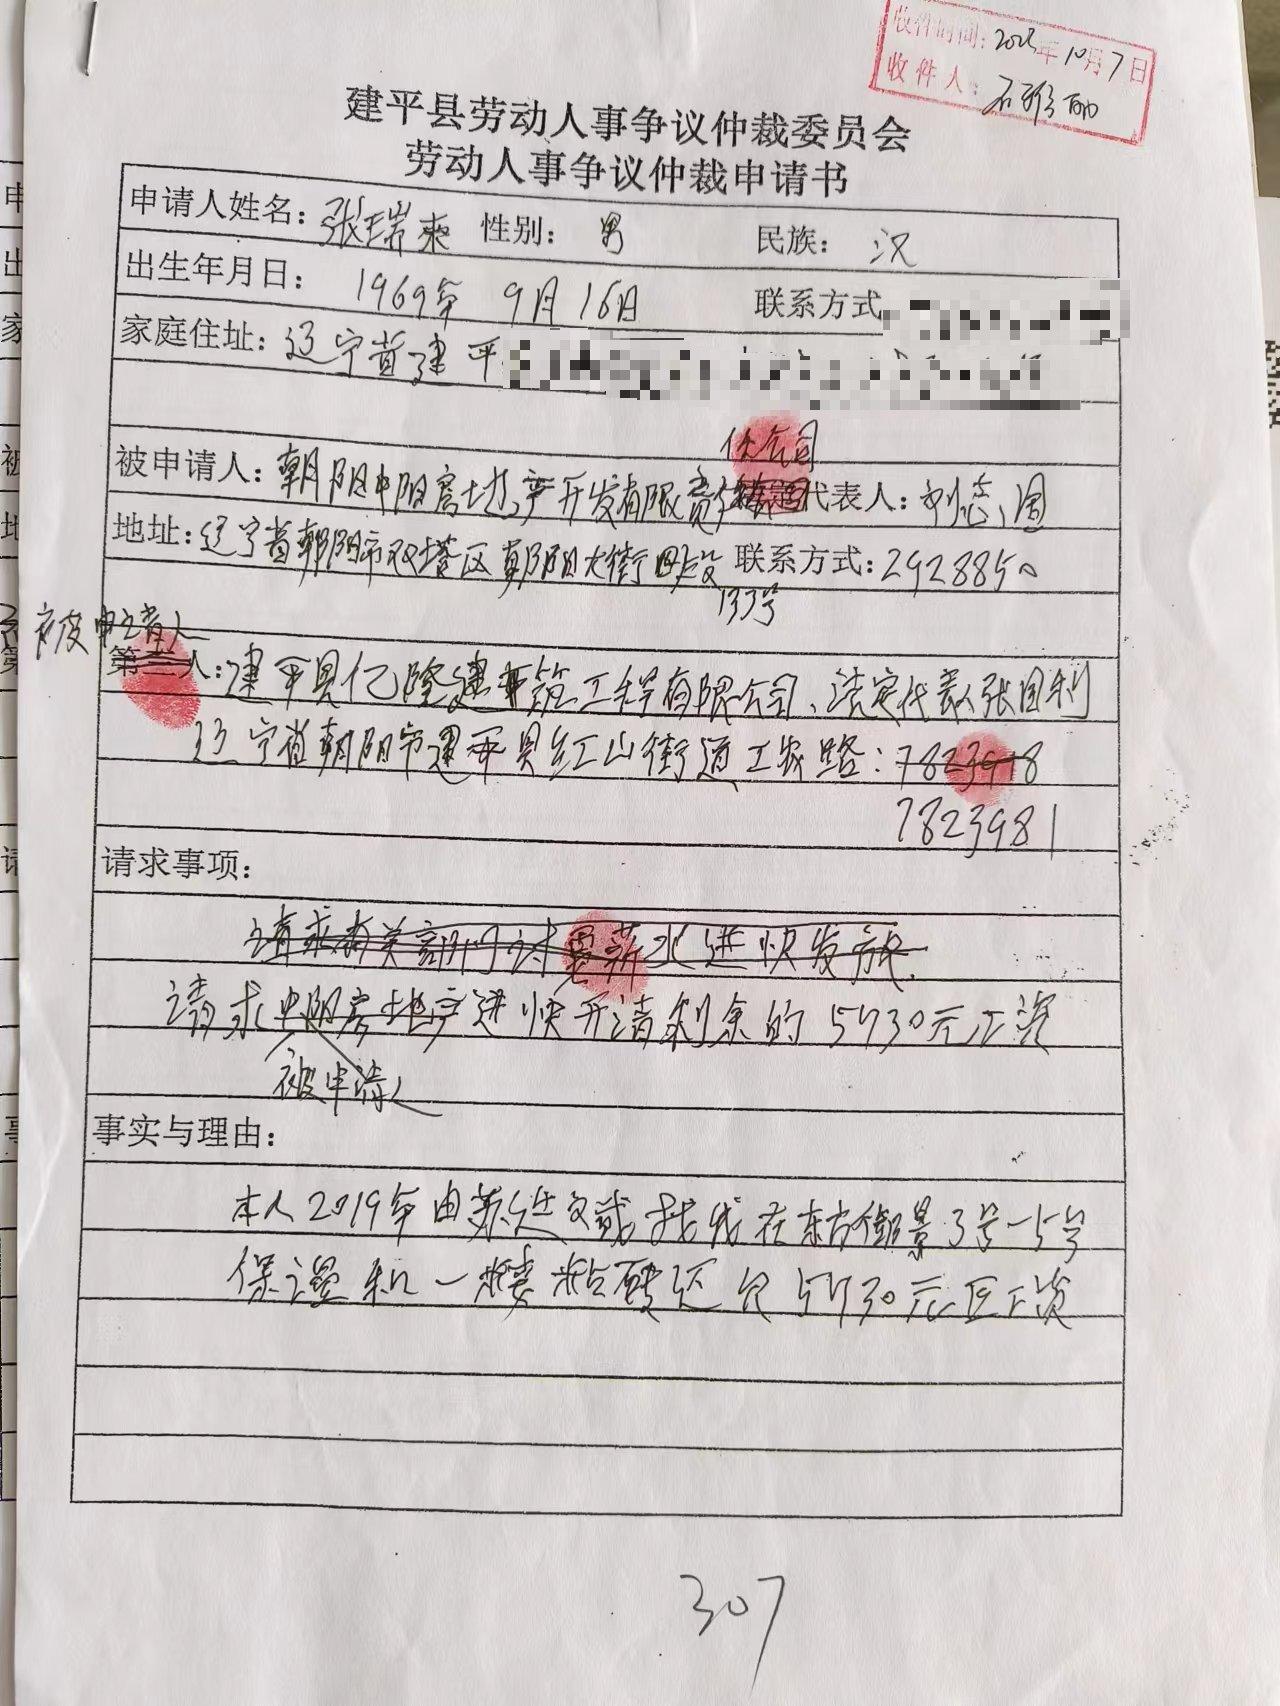 收件时间：2023年10月7日
收件人：石
建平县劳动人事争议仲裁委员会
劳动人事争议仲裁申请书
申请人姓名：张瑞爽 性别：男 民族：汉
出生年月日：1969年 9月16日 联系方式
家庭住址：辽宁省建平
任公司
被申请人：朝阳中阳房地产开发有限责 代表人：刘志国
地址：辽宁省朝阳市双塔区朝阳大街四段 联系方式：2928850
133号
被申请人
第三人：建平县亿隆建平筑工程有限公司、法定代表人张国利
辽宁省朝阳市建平县红山街道工农路：7823918
7823981
请求事项：
请求有关部门对 薪水进快发放.
请求中阳房地产进快开清剩余的5730元工资
被申请人
事实与理由：
本人2019年由 找我在东方街景3号-5号
保温和一楼粘砖还欠5730元 工资
307